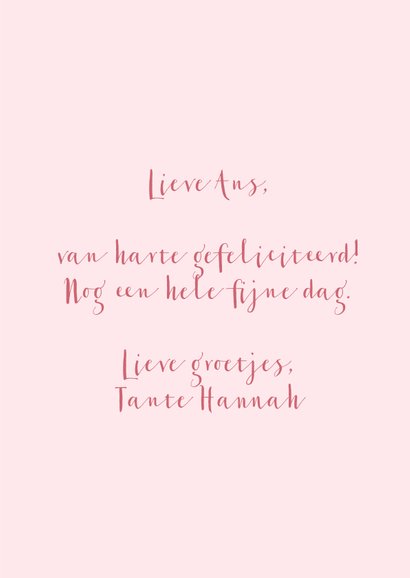 Lieve Ans,
van harte gefeliciteerd!
Nog een hele fijne dag.
Lieve groetjes,
Tante Hannah